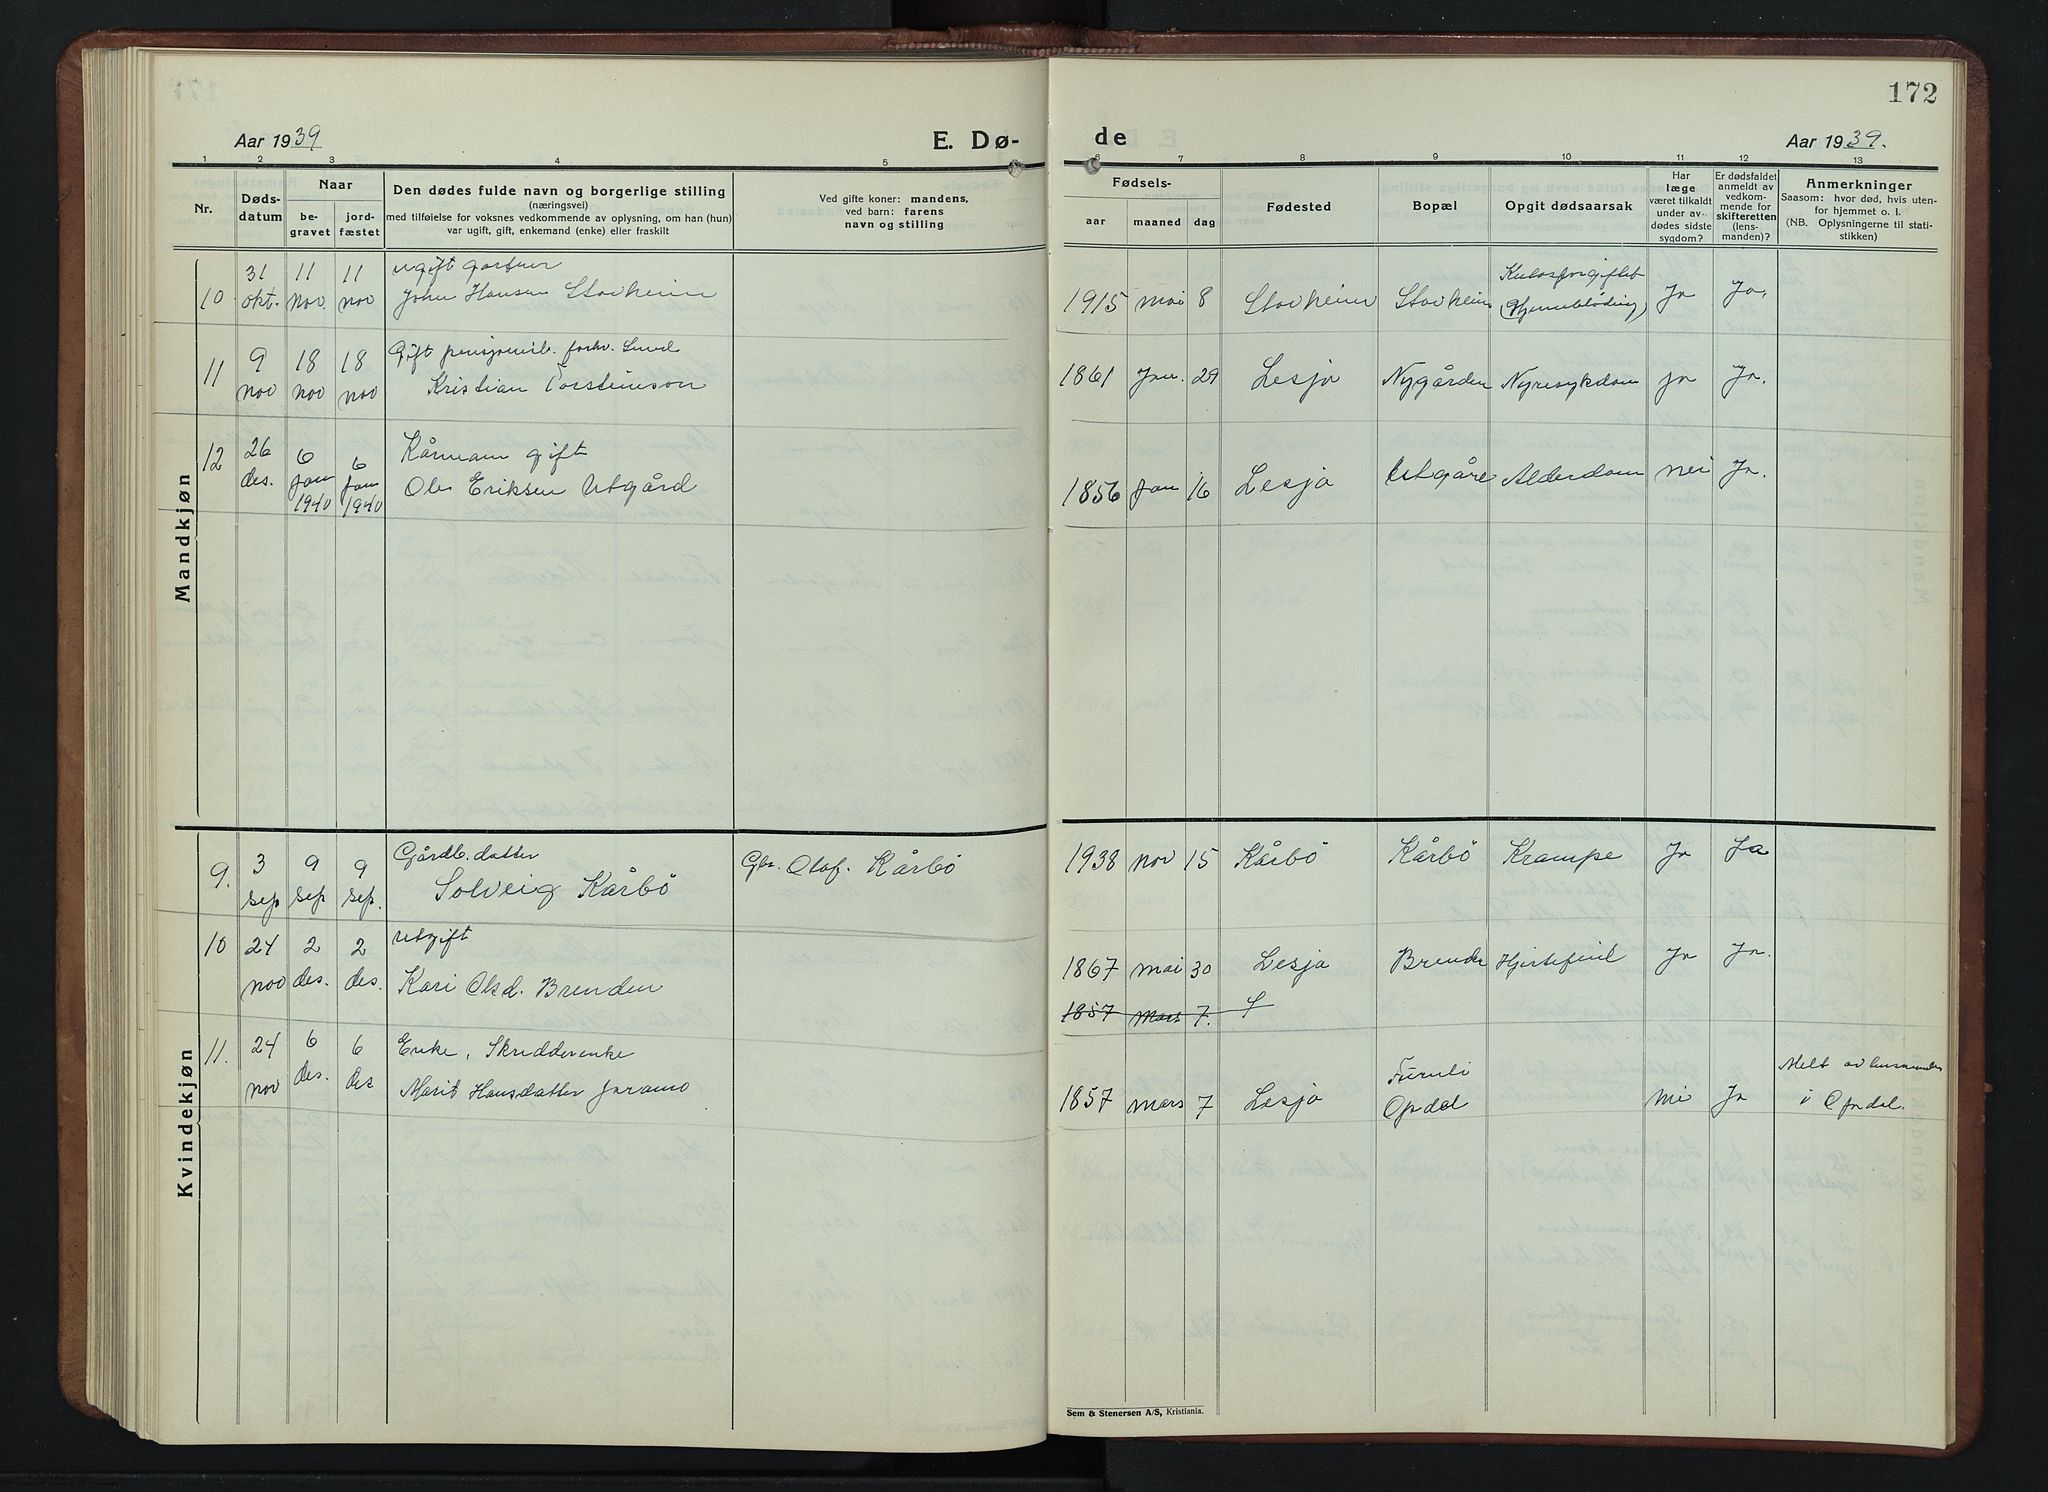 172
Aar 1939
E. Dø-
de
Aar 1939.
1 2 3 4 5 6 7 8 9 10 11 12 13
Nr.
Døds-
datum
Naar
be-
gravet
jord-
fæstet
Den dødes fulde navn og borgerlige stilling
(næringsvei)
med tilføielse for voksnes vedkommende av oplysning, om han (hun)
var ugift, gift, enkemand (enke) eller fraskilt
Ved gifte koner: mandens,
ved barn: farens
navn og stilling
Fødsels-
aar maaned dag
Fødested
Bopæl
Opgit dødsaarsak
Har
læge
været tilkaldt
under av-
dødes sidste
sygdom?
Er dødsfaldet
anmeldt av
vedkom-
mende for
skifteretten
(lens-
manden)?
Anmerkninger
Saasom: hvor død, hvis uten-
for hjemmet o. l.
(NB. Oplysningerne til stati-
stikken)
Mandkjøn
10 31 okt. 11 nov. 11 nov
ugift gartner
John Hansen Storheim
1915 mai 8 Storheim Storheim
Kulosforgiftet
(Hjerneblødning)
Ja Ja.
11 9 nov 18 nov 18 nov
Gift pensjonist. forhv. Smed
Kristian Torsteinson
1861 Jan. 29 Lesja Nygården Nyresykdom ja Ja.
12 26 des. 6 Jan 1940 6 Jan 1940
Kårmann gift
Ole Eriksen Utgård
1856 Jan 16 Lesja Utgård Alderdom nei Ja.
Kvindekjøn
9. 3 sep 9 sep 9 sep.
Gårdb. datter
Solveig Kårbö
Gbr. Olaf. Kårbö
1938 nov 15 Kårbö Kårbö Krampe Ja Ja
10 24 nov 2 des. 2 des.
Utgift
Kari Olsd. Brenden
1867 mai 30 Lesja Brenden Hjertefeil Ja Ja.
1857 mars 7. L
11. 24 nov 6 des. 6 des
Enke, Skredderenke
Marit Hansdatter Joramo
1857 mars 7 Lesja
Furuli
Opdal
nei Ja
Melt av lensmannen
i Opdal.
Sem & Stenersen A/S, Kristiania.